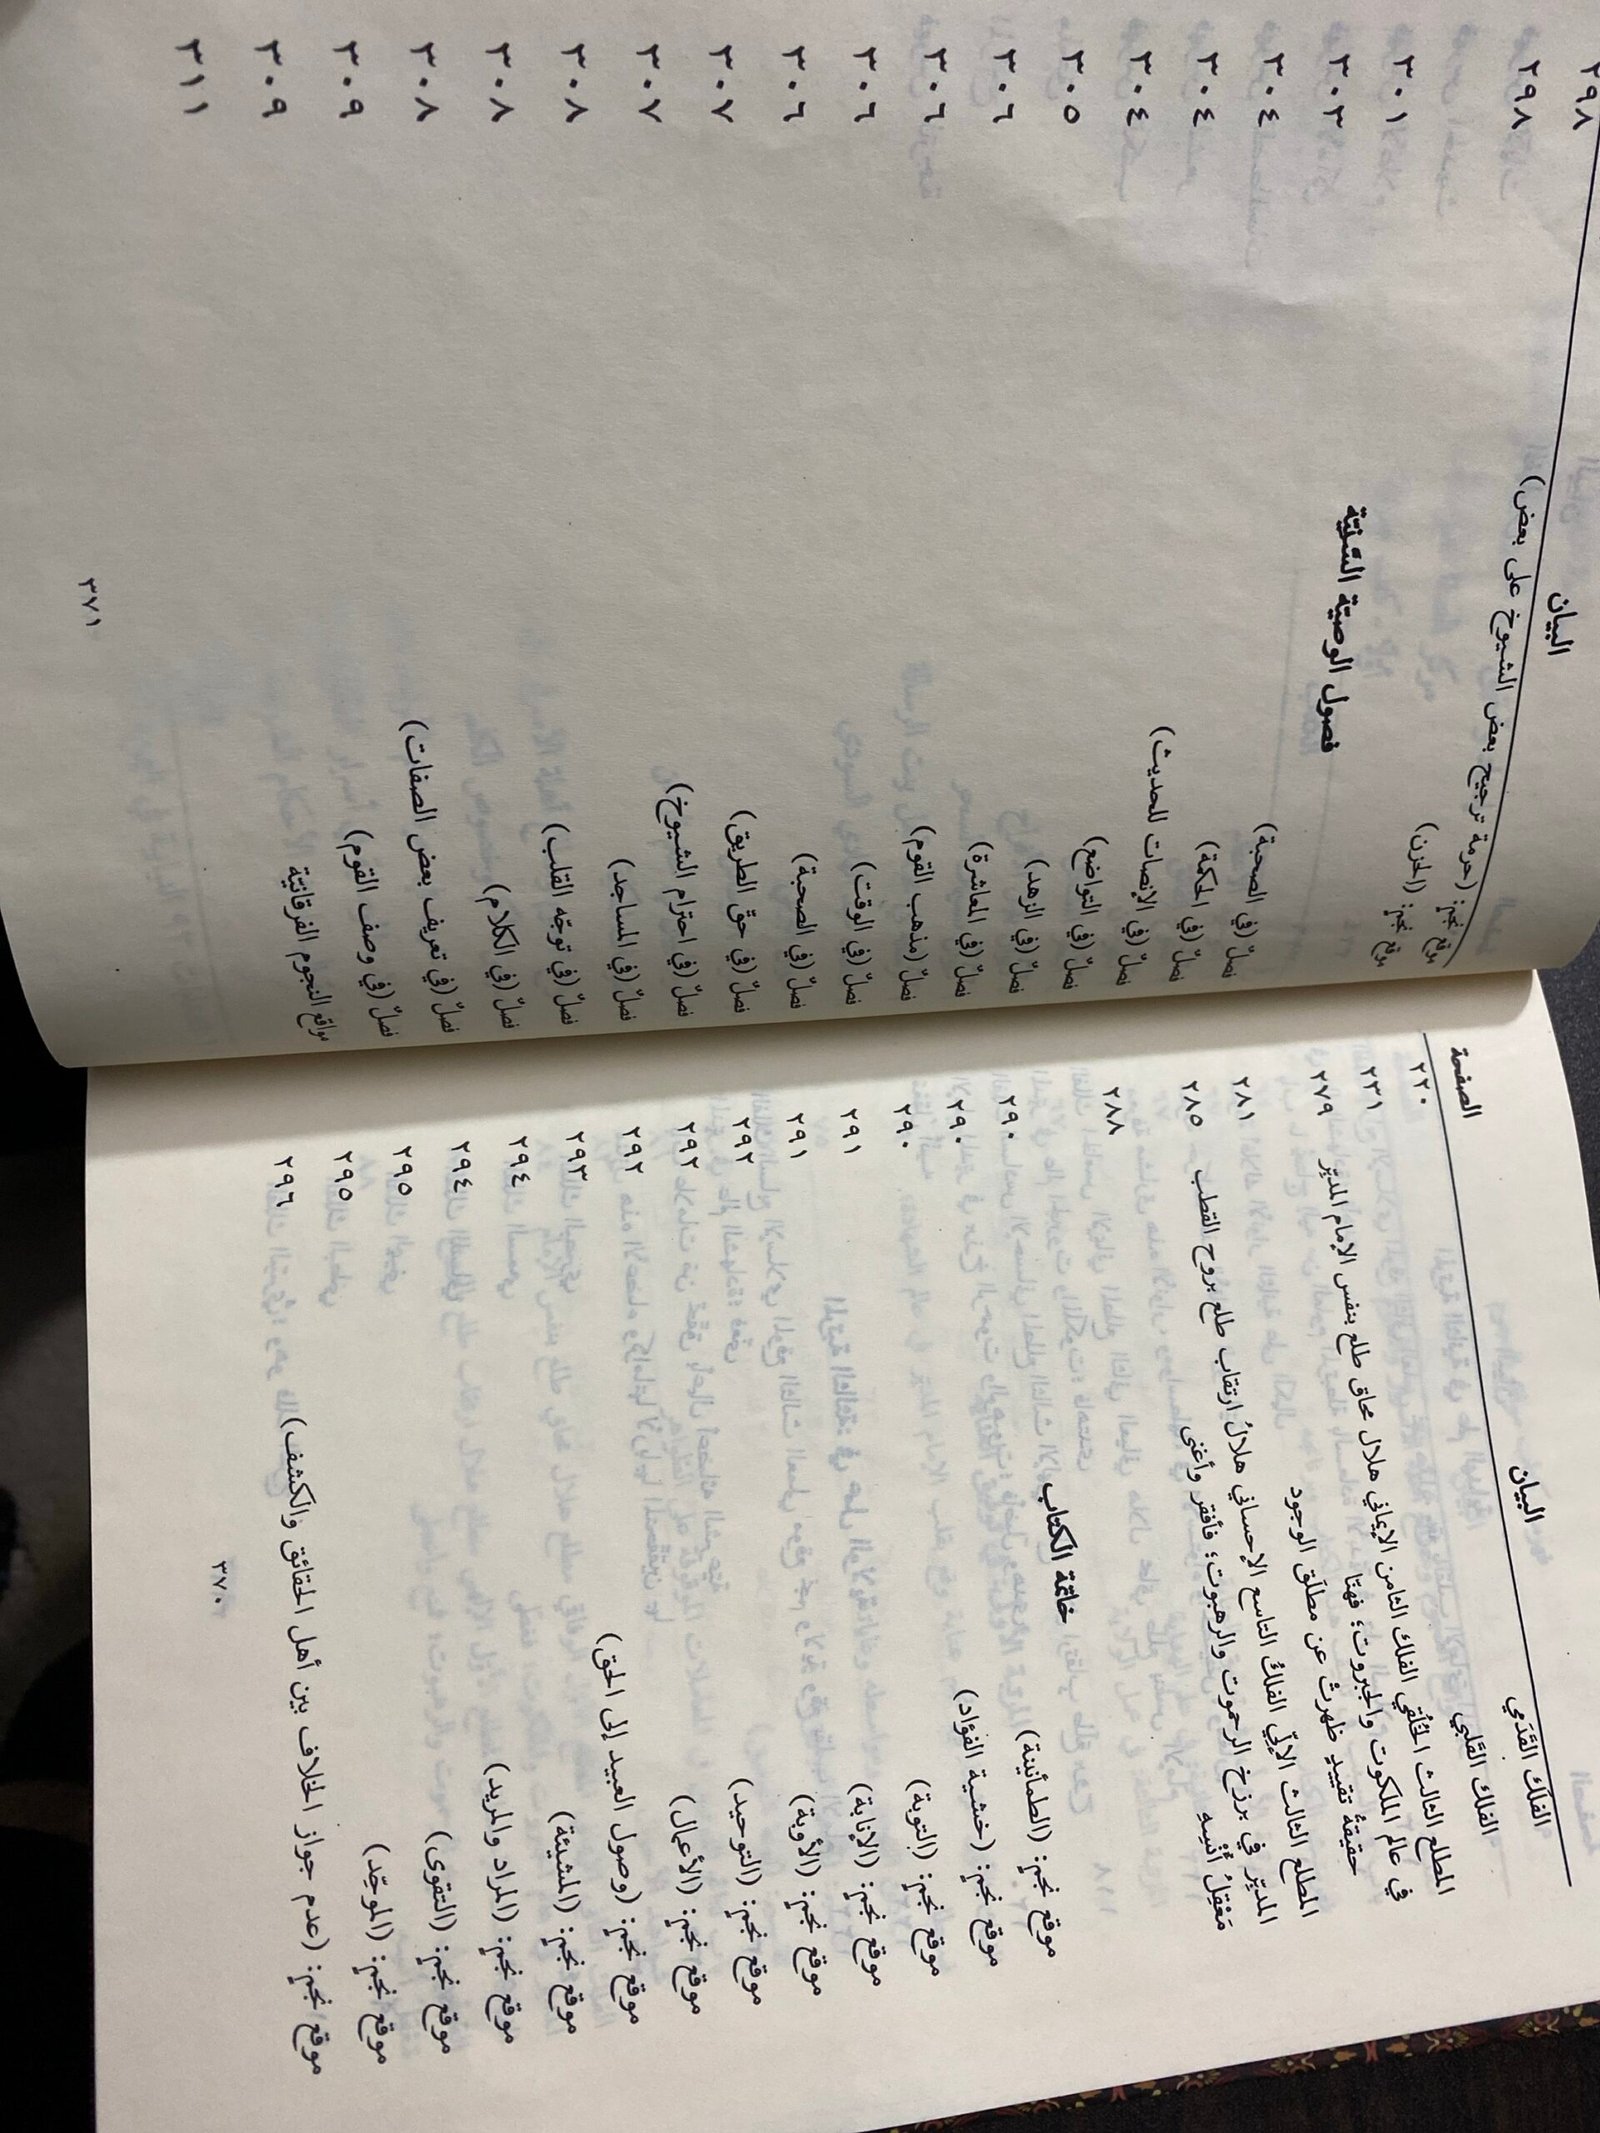 البيان
الصفحة
الفلك القَدَمي
٢٢٠
الفلك القَلبي
٢٣١
المطلع الثالث الخُلُقي الفلك الثامن الإيماني هلال محاق طلع بنفس الإمام المدبّر
في عالم الملكوت والجبروت؛ فهنّا
٢٧٩
حقيقةُ تقييدٍ ظهرتْ عن مطلَق الوجود
٢٨١
المطلع الثالث الإلّي الفلكُ التاسع الإحساني هلالُ ارتقاب طلع بروح القطب
المدبّر في برزخ الرحموت والرهبوت؛ فأفقر وأغنى
٢٨٥
مَعْقِلُ أُنْسِهِ
٢٨٨
خاتمة الكتاب
موقع نجم: (الطمأنينة)
٢٩٠
موقع نجم: (خشية الفؤاد)
٢٩٠
موقع نجم: (التوبة)
٢٩٠
موقع نجم: (الإنابة)
٢٩١
موقع نجم: (الأوبة)
٢٩١
موقع نجم: (التوحيد)
٢٩٢
موقع نجم: (الأعمال)
٢٩٢
موقع نجم: (وصول العبيد إلى الحق)
٢٩٢
موقع نجم: (المشيئة)
٢٩٣
موقع نجم: (المراد والمريد)
٢٩٤
موقع نجم: (التقوى)
٢٩٤
موقع نجم: (الموحّد)
٢٩٥
٢٩٥
موقع نجم: (عدم جواز الخلاف بين أهل الحقائق والكشف)
٢٩٦
٣٧٠
البيان
موقع نجم: (حرمة ترجيح بعض الشيوخ على بعض)
٢٩٨
موقع نجم: (الحزن)
٢٩٨
فصول الوصيّة السَّنيّة
٣٠١
٣٠٣
فصلٌ (في الصحبة)
٣٠٤
فصلٌ (في الحكمة)
٣٠٤
فصلٌ (في الإنصات للحديث)
٣٠٤
فصلٌ (في التواضع)
٣٠٥
فصلٌ (في الزهد)
٣٠٦
فصلٌ (في المعاشرة)
٣٠٦
فصلٌ (مذهب القوم)
٣٠٦
فصلٌ (في الوقت)
٣٠٦
فصلٌ (في الصحبة)
٣٠٧
فصلٌ (في حقّ الطريق)
٣٠٧
فصلٌ (في احترام الشيوخ)
٣٠٨
فصلٌ (في المساجد)
٣٠٨
فصلٌ (في توجّه القلب)
٣٠٨
فصلٌ (في الكلام)
٣٠٩
فصلٌ (في تعريف بعض الصفات)
٣٠٩
فصلٌ (في وصف القوم)
٣١١
مواقع النجوم الفرقانيّة
٣٧١